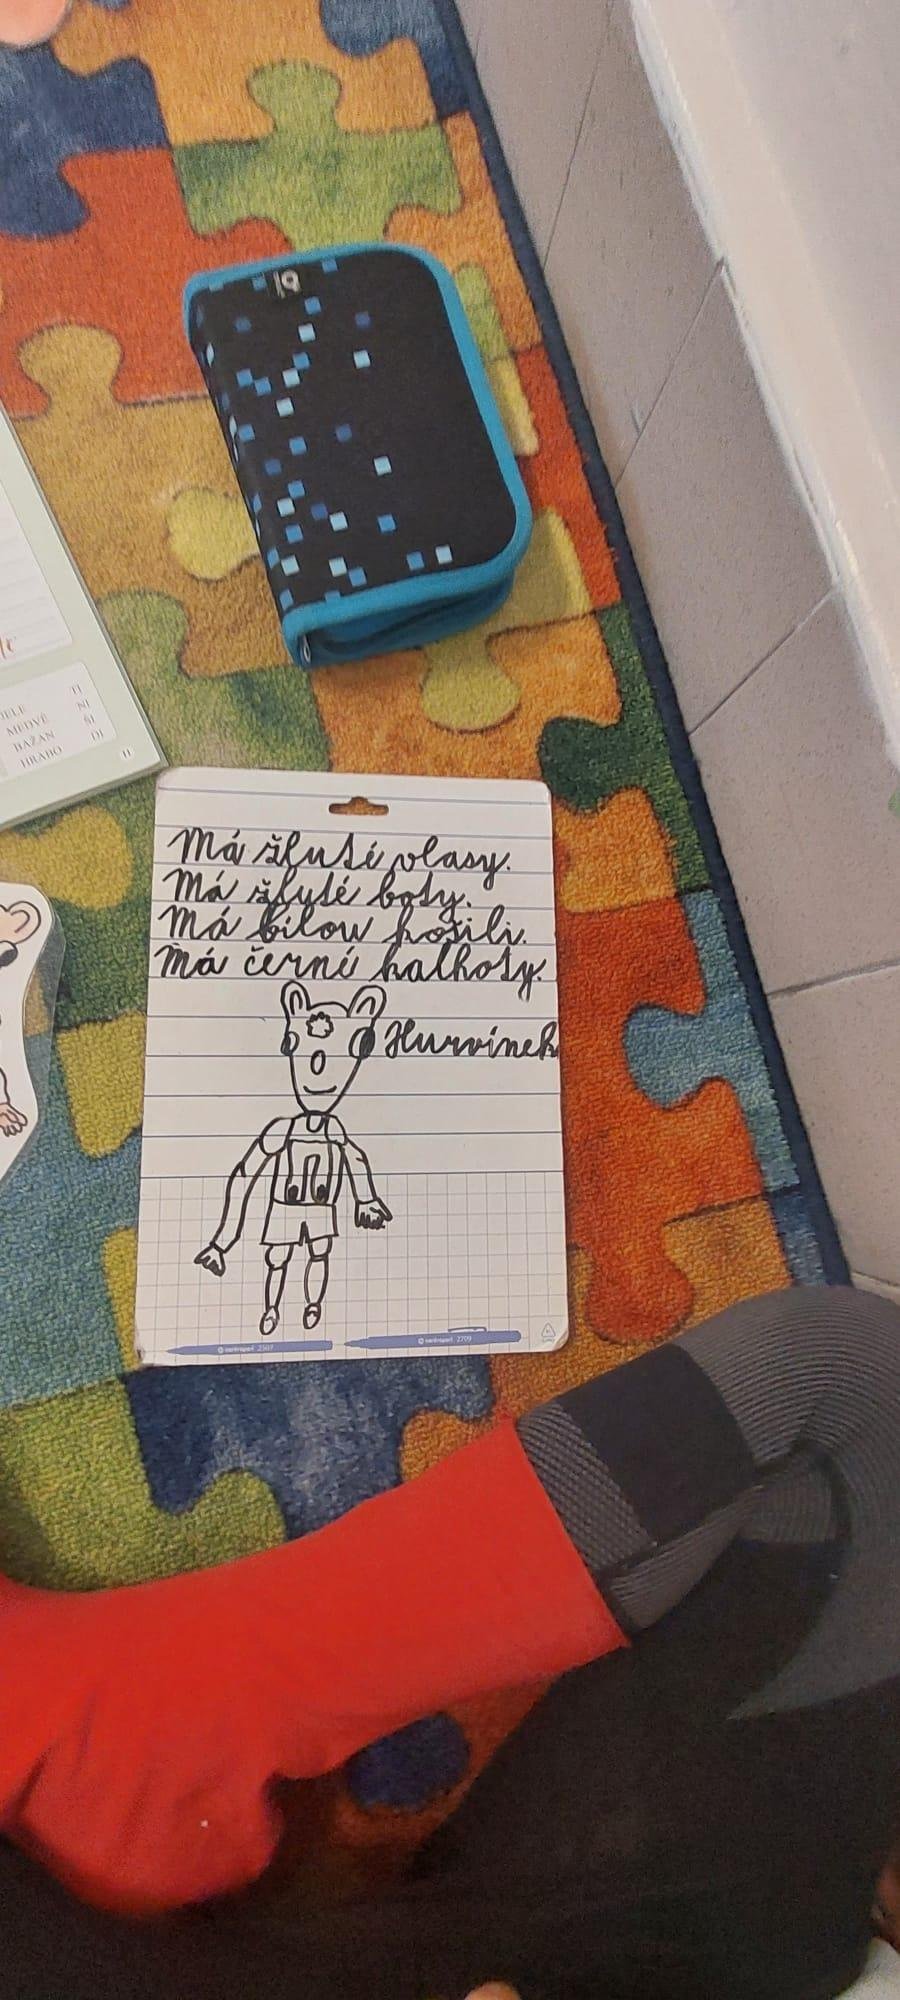 JELE
MEDVĚ
BAŽAN
HRABO
TI
NI
ŠI
DI
11
Má žluté vlasy.
Má žluté boty.
Má bílou košili.
Má černé kalhoty.
Hurvínek
centropen 2507
centropen 2709